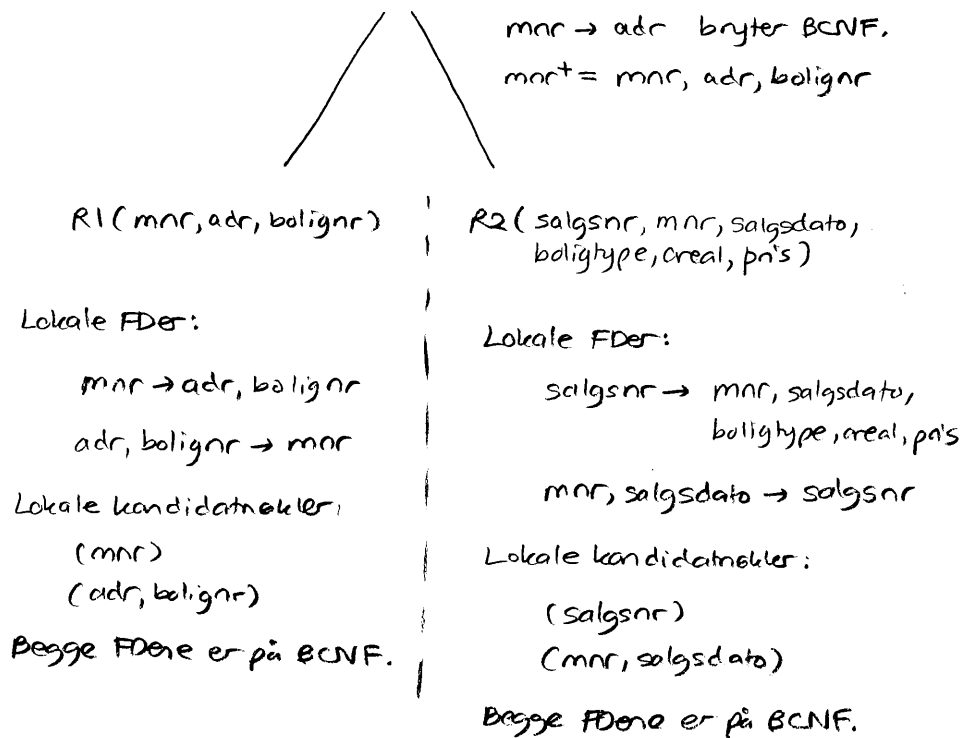 mnr → adr bryter BCNF.
mnr⁺ = mnr, adr, bolignr
R1(mnr, adr, bolignr)
Lokale FDer:
mnr → adr, bolignr
adr, bolignr → mnr
Lokale kandidatnøkler:
(mnr)
(adr, bolignr)
Begge FDene er på BCNF.
R2(salgsnr, mnr, salgsdato,
boligtype, areal, pris)
Lokale FDer:
salgsnr → mnr, salgsdato,
boligtype, areal, pris
mnr, salgsdato → salgsnr
Lokale kandidatnøkler:
(salgsnr)
(mnr, salgsdato)
Begge FDene er på BCNF.